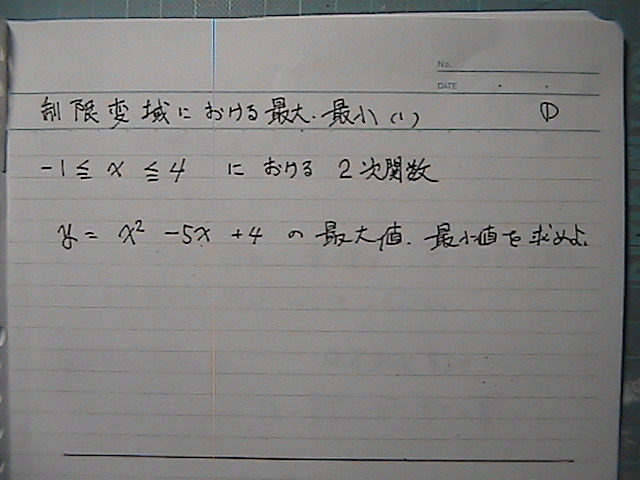 No.
DATE ・ ・
制限変域における最大・最小(1) ①
-1≦x≦4 における 2次関数
y = x² -5x +4 の最大値.最小値を求めよ.